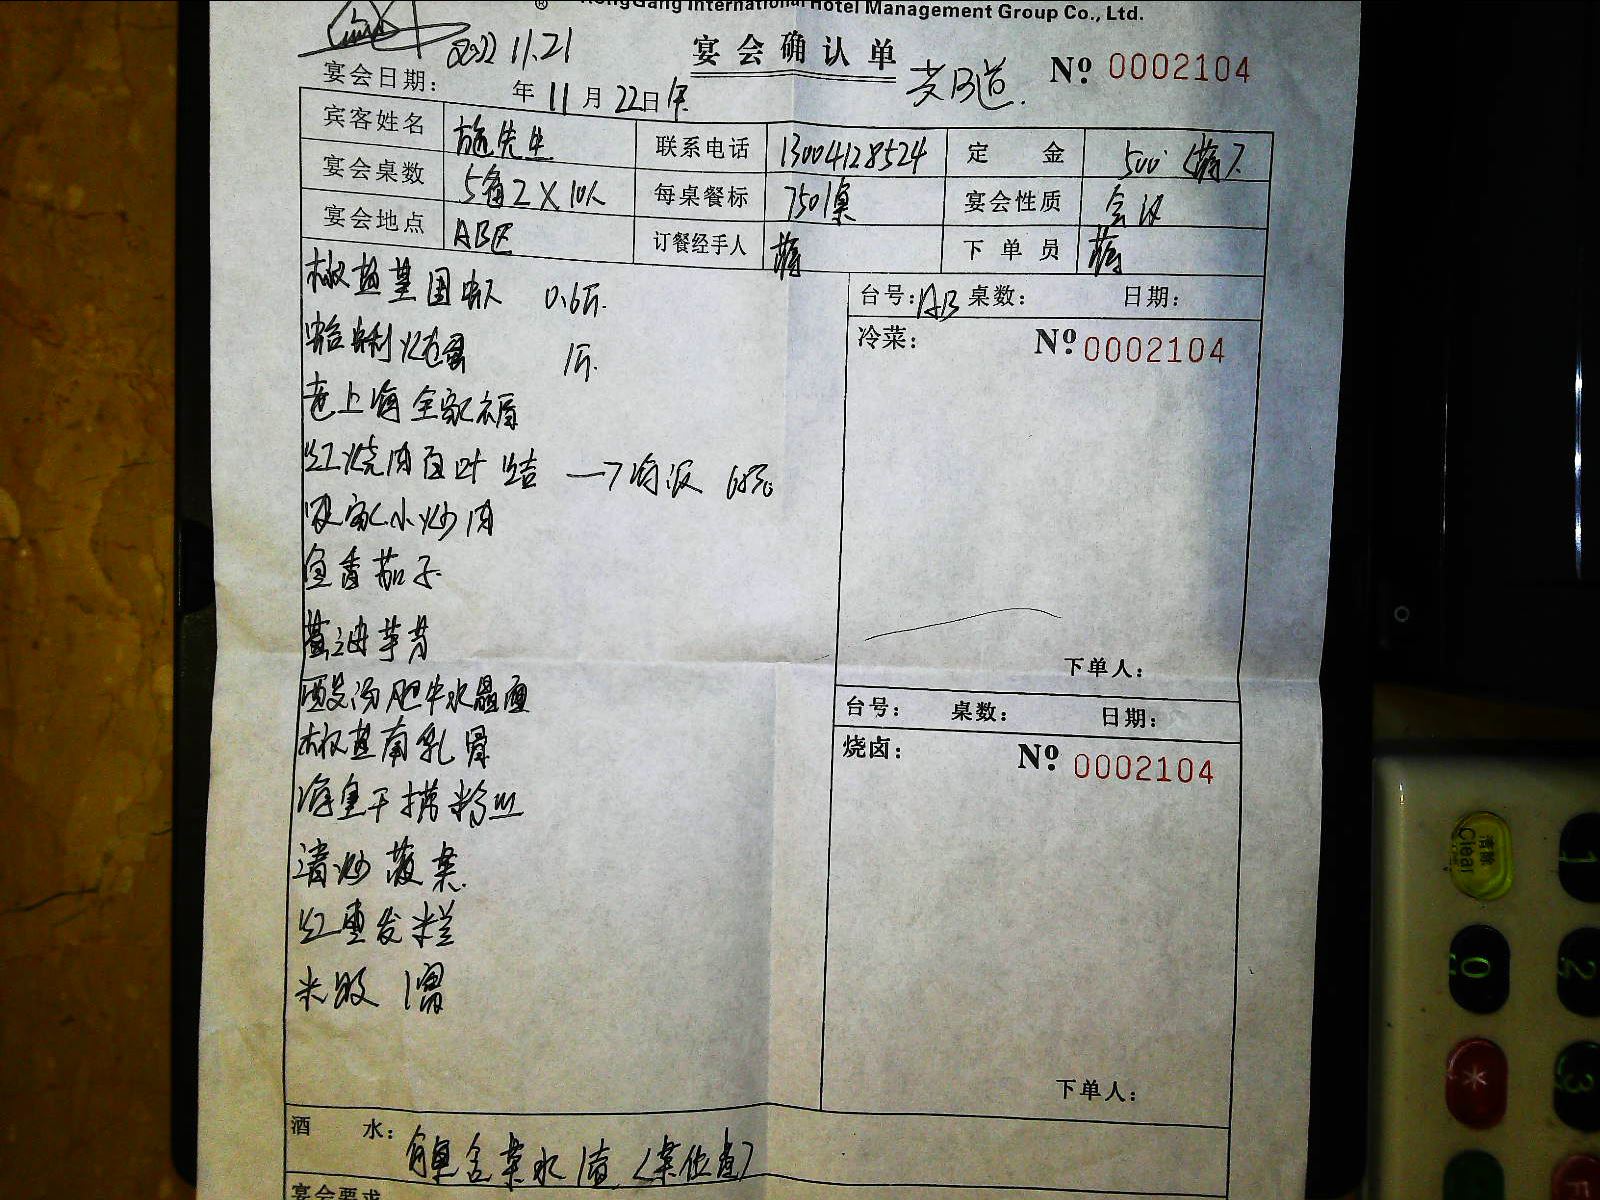 RongGang International Hotel Management Group Co., Ltd.
11.21
宴会确认单
No. 0002104
宴会日期： 年 11 月 22日
宾客姓名 施先生 联系电话 13004128524 定金 500
宴会桌数 5备2×10人 每桌餐标 750/桌 宴会性质 会议
宴会地点 AB区 订餐经手人 蒋 下单员 蒋
椒盐基围虾 0.6斤
蛤蜊炖蛋 1斤
老上海全家福
红烧肉百叶结
农家小炒肉
鱼香茄子
葱油芋艿
酸汤肥牛水晶面
椒盐南乳骨
海皇干捞粉丝
清炒菠菜
红枣发糕
米饭
台号：AB 桌数： 日期：
冷菜： No. 0002104
下单人：
台号： 桌数： 日期：
烧卤： No. 0002104
下单人：
酒水：
宴会要求
清除
Clear
1
0
2
*
3